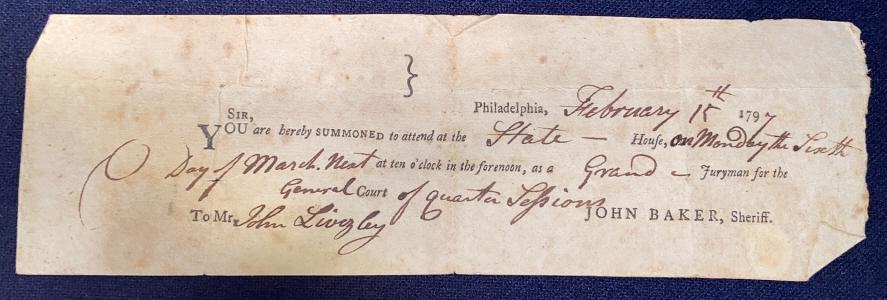 }
Philadelphia, February 15th 1797
SIR,
YOU are hereby SUMMONED to attend at the State — House, on Monday the Sixth
Day of March. Next at ten o'clock in the forenoon, as a Grand — Juryman for the
General Court of quarter Sessions
To Mr. John Livezley JOHN BAKER, Sheriff.